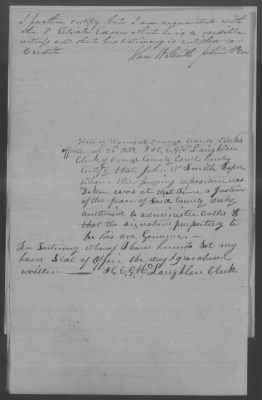 I further certify that I am acquainted with
the P and that he is a credible
witness and that his testimony is entitled to
Credit
John W Smith Justice Peace
State of Vermont Orange County Clerks
office I H. E. G. McLaughlin
Clerk of Orange County Court hereby
Certify that John W. Smith Before
whom the foregoing deposition was
Taken was at that time a Justice
of the peace of Said County duly
authorized to administer oaths &
that the signature purporting to
be his are Genuine —
In Testimony whereof I have hereunto Set my
hand Seal of Office the day & year above
written — H. E. G. McLaughlin Clerk